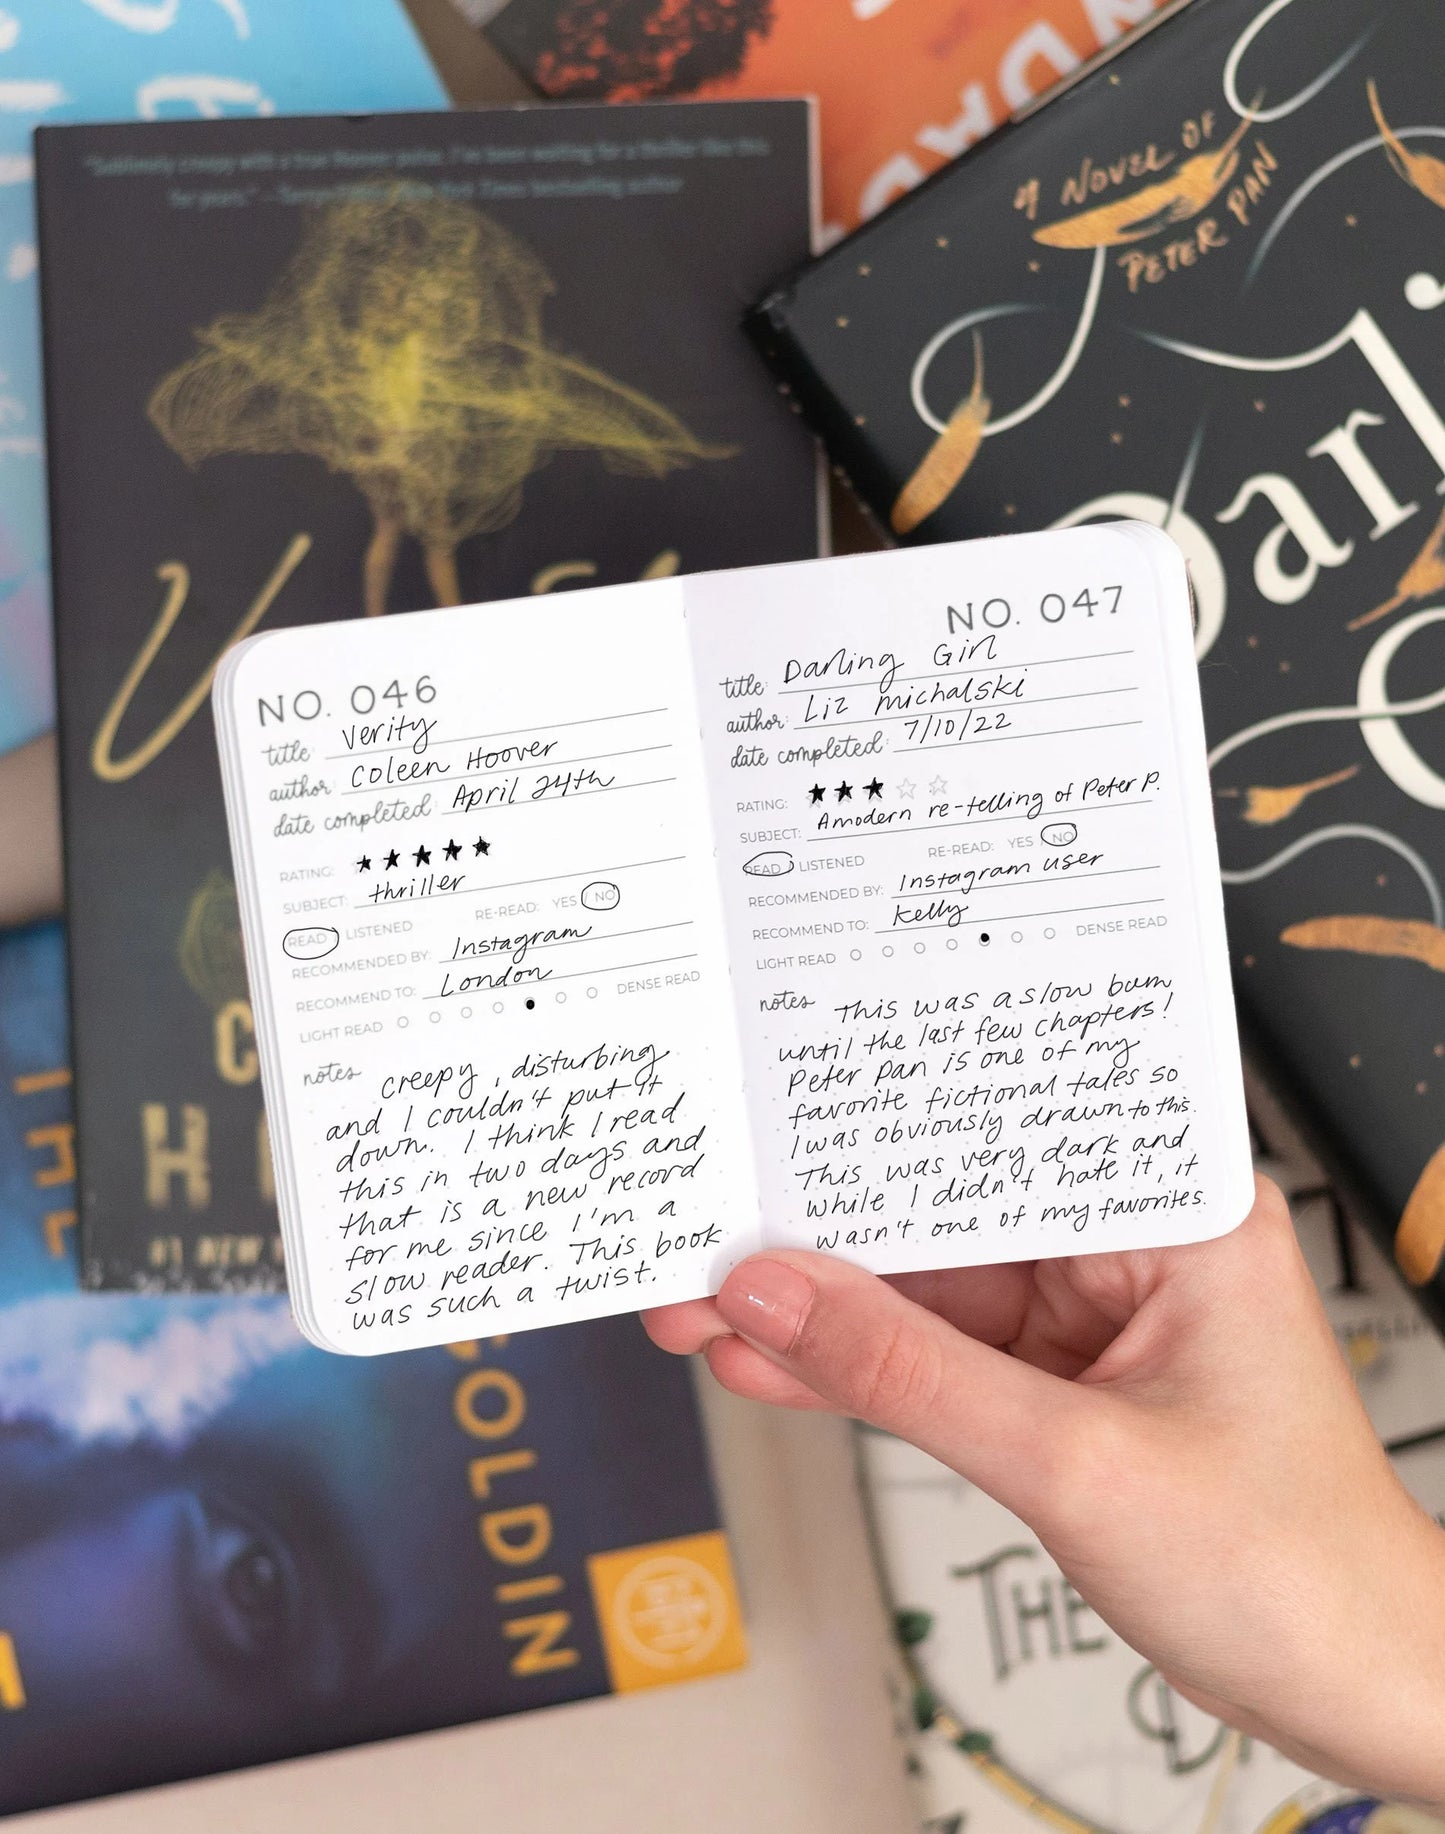 A NOVEL OF
PETER PAN
Darli
NO. 046
title: Verity
author: Coleen Hoover
date completed: April 24th
RATING: ★★★★★
SUBJECT: thriller
READ / LISTENED RE-READ: YES / NO
RECOMMENDED BY: Instagram
RECOMMEND TO: London
LIGHT READ DENSE READ
notes creepy, disturbing
and I couldn't put it
down. I think I read
this in two days and
that is a new record
for me since I'm a
slow reader. This book
was such a twist.
NO. 047
title: Darling Girl
author: Liz michalski
date completed: 7/10/22
RATING: ★★★☆☆
SUBJECT: A modern re-telling of Peter P.
READ / LISTENED RE-READ: YES / NO
RECOMMENDED BY: Instagram user
RECOMMEND TO: Kelly
LIGHT READ DENSE READ
notes This was a slow burn
until the last few chapters!
Peter Pan is one of my
favorite fictional tales so
I was obviously drawn to this.
This was very dark and
while I didn't hate it, it
wasn't one of my favorites.
C
H
#1 NEW
GOLDIN
THE